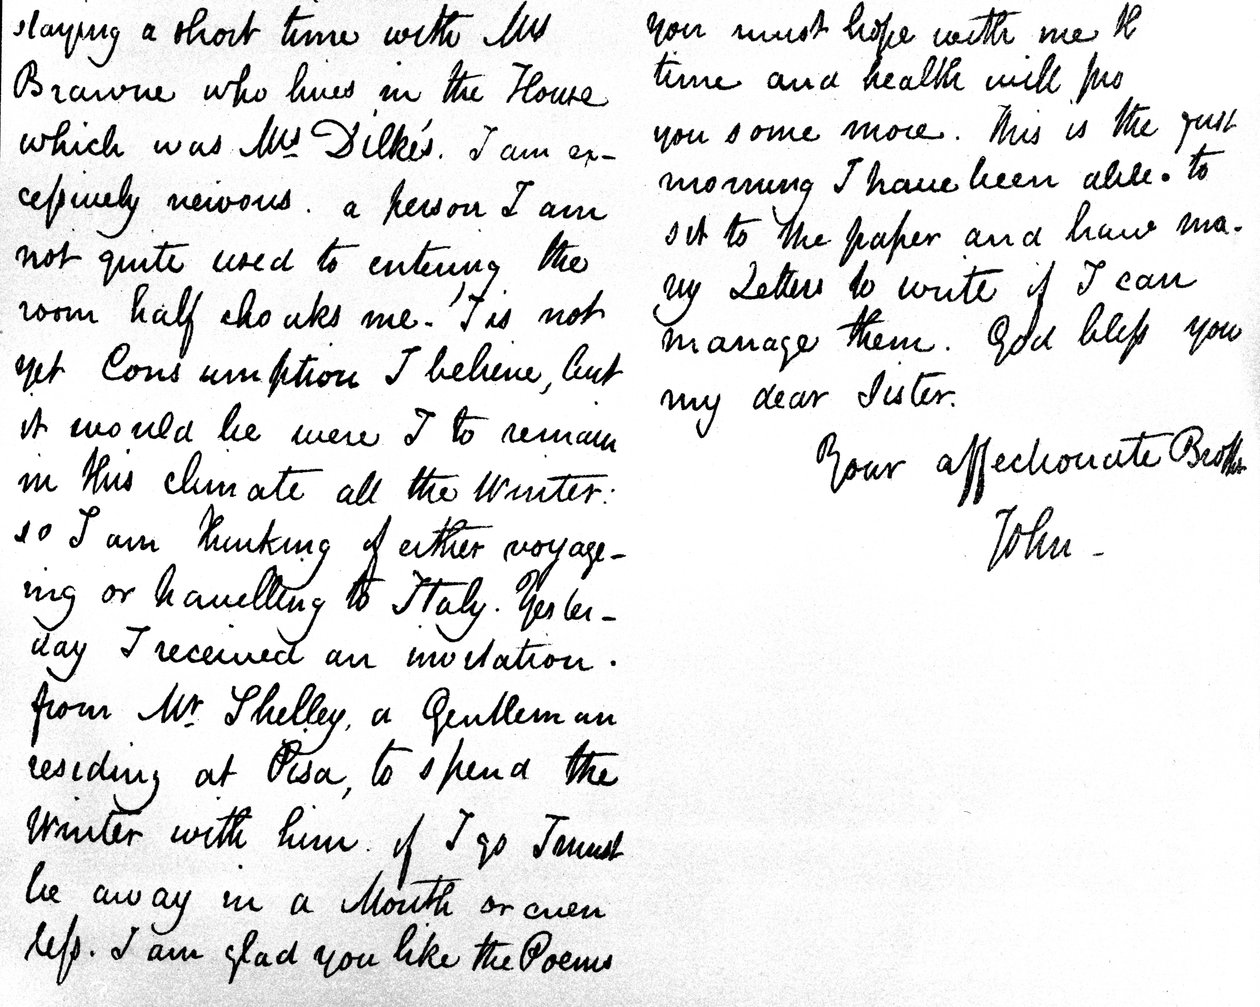 staying a short time with Mrs
Brawne who lives in the House
which was Mrs Dilke's. I am ex-
cessively nervous. a person I am
not quite used to entering the
room half choaks me. 'T is not
yet Consumption I believe, but
it would be were I to remain
in this climate all the Winter:
so I am thinking of either voyage-
ing or travelling to Italy. Yester-
day I received an invitation.
from Mr Shelley, a Gentleman
residing at Pisa, to spend the
Winter with him. if I go I must
be away in a Month or even
less. I am glad you like the Poems
you must hope with me th
time and health will pro
you some more. This is the first
morning I have been able. to
sit to the paper and have ma-
ny Letters to write if I can
manage them. God bless you
my dear Sister.
Your affectionate Brother
John -